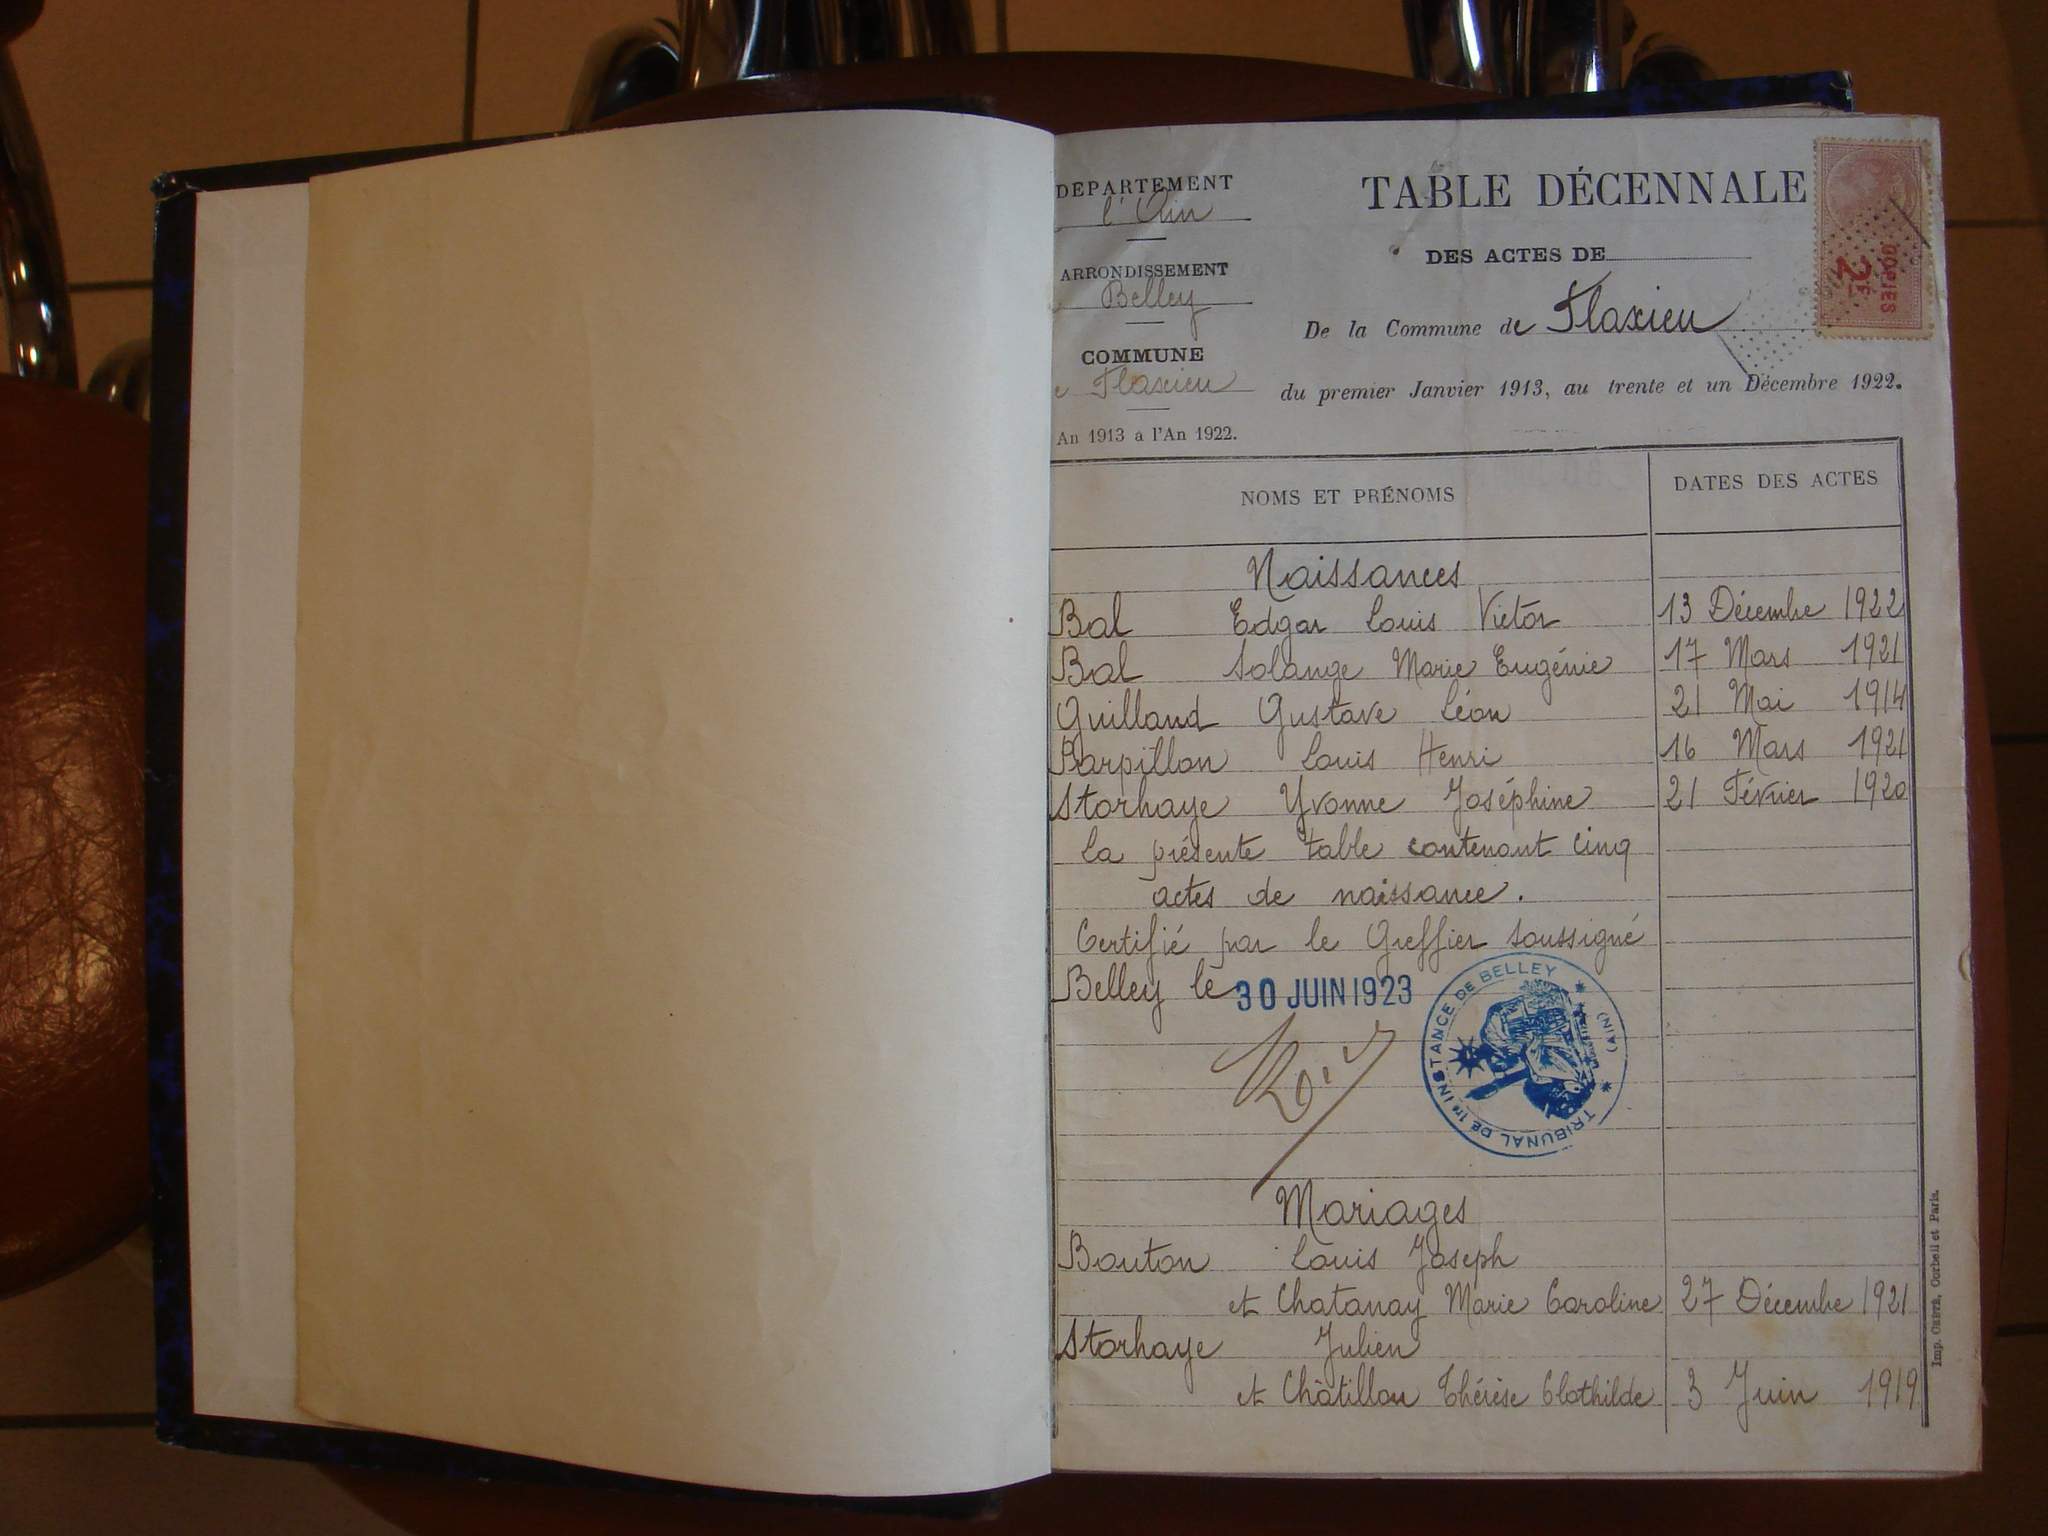 DEPARTEMENT
l'Ain
ARRONDISSEMENT
Belley
COMMUNE
Flaxieu
An 1913 à l'An 1922.
TABLE DÉCENNALE
DES ACTES DE
De la Commune de Flaxieu
du premier Janvier 1913, au trente et un Décembre 1922.
COPIES
2F
NOMS ET PRÉNOMS
DATES DES ACTES
Naissances
Bal Edgar Louis Victor 13 Décembre 1922
Bal Solange Marie Eugénie 17 Mars 1921
Guilland Gustave Léon 21 Mai 1914
Parpillon Louis Henri 16 Mars 1921
Storhaye Yvonne Joséphine 21 Février 1920
La présente table contenant cinq
actes de naissance.
Certifié par le Greffier soussigné
Belley le 30 JUIN 1923
TRIBUNAL DE 1re INSTANCE DE BELLEY
(AIN)
Mariages
Bouton Louis Joseph
et Chatanay Marie Caroline 27 Décembre 1921
Storhaye Julien
et Châtillon Thérèse Clothilde 3 Juin 1919
Imp. CRÉTÉ, Corbeil et Paris.